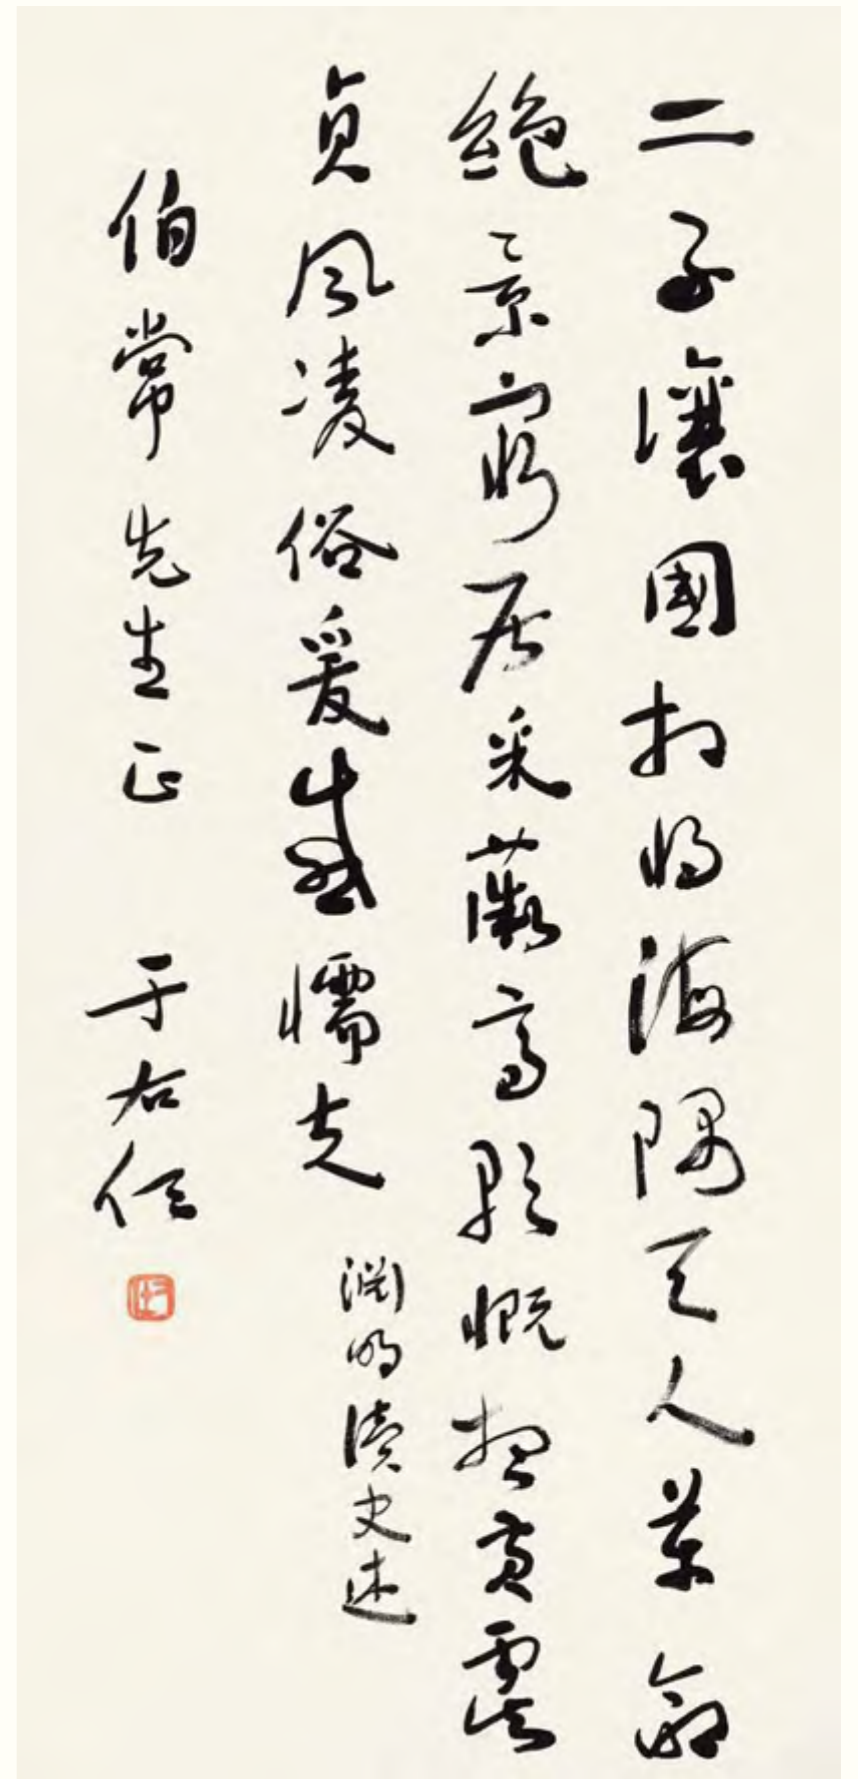 二子讓國相將海隅天人革命
絕景窮居采薇高歌慨想黃虞
貞風凌俗爰感懦夫
淵明讀史述
伯常先生正 于右任